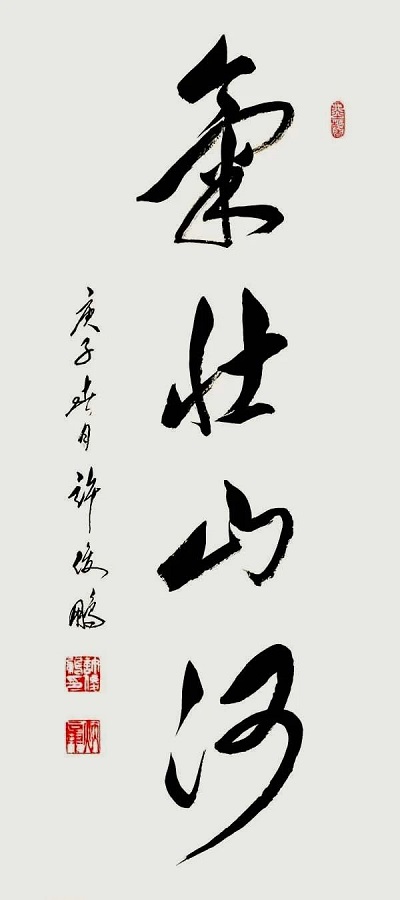 氣壯山河
庚子春月許俊鵬